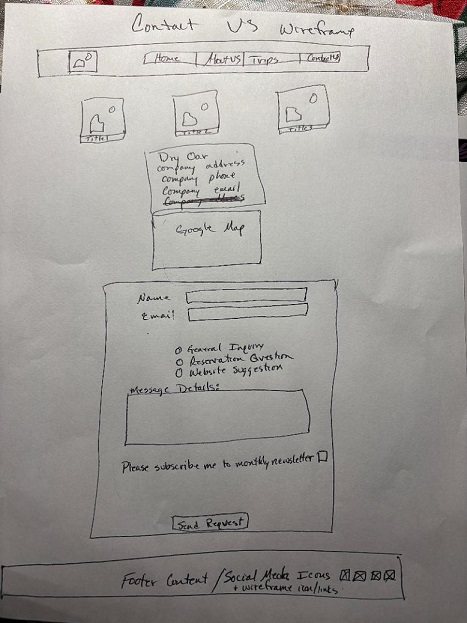 Contact Us Wireframe
Home About US Trips Contact US
Title 1 Title 2 Title 3
Dry Oar
company address
company phone
company email
Google Map
Name
Email
General Inquiry
Reservation Question
Website Suggestion
Message Details:
Please subscribe me to monthly newsletter
Send Request
Footer Content / Social Media Icons
+ wireframe icon/links